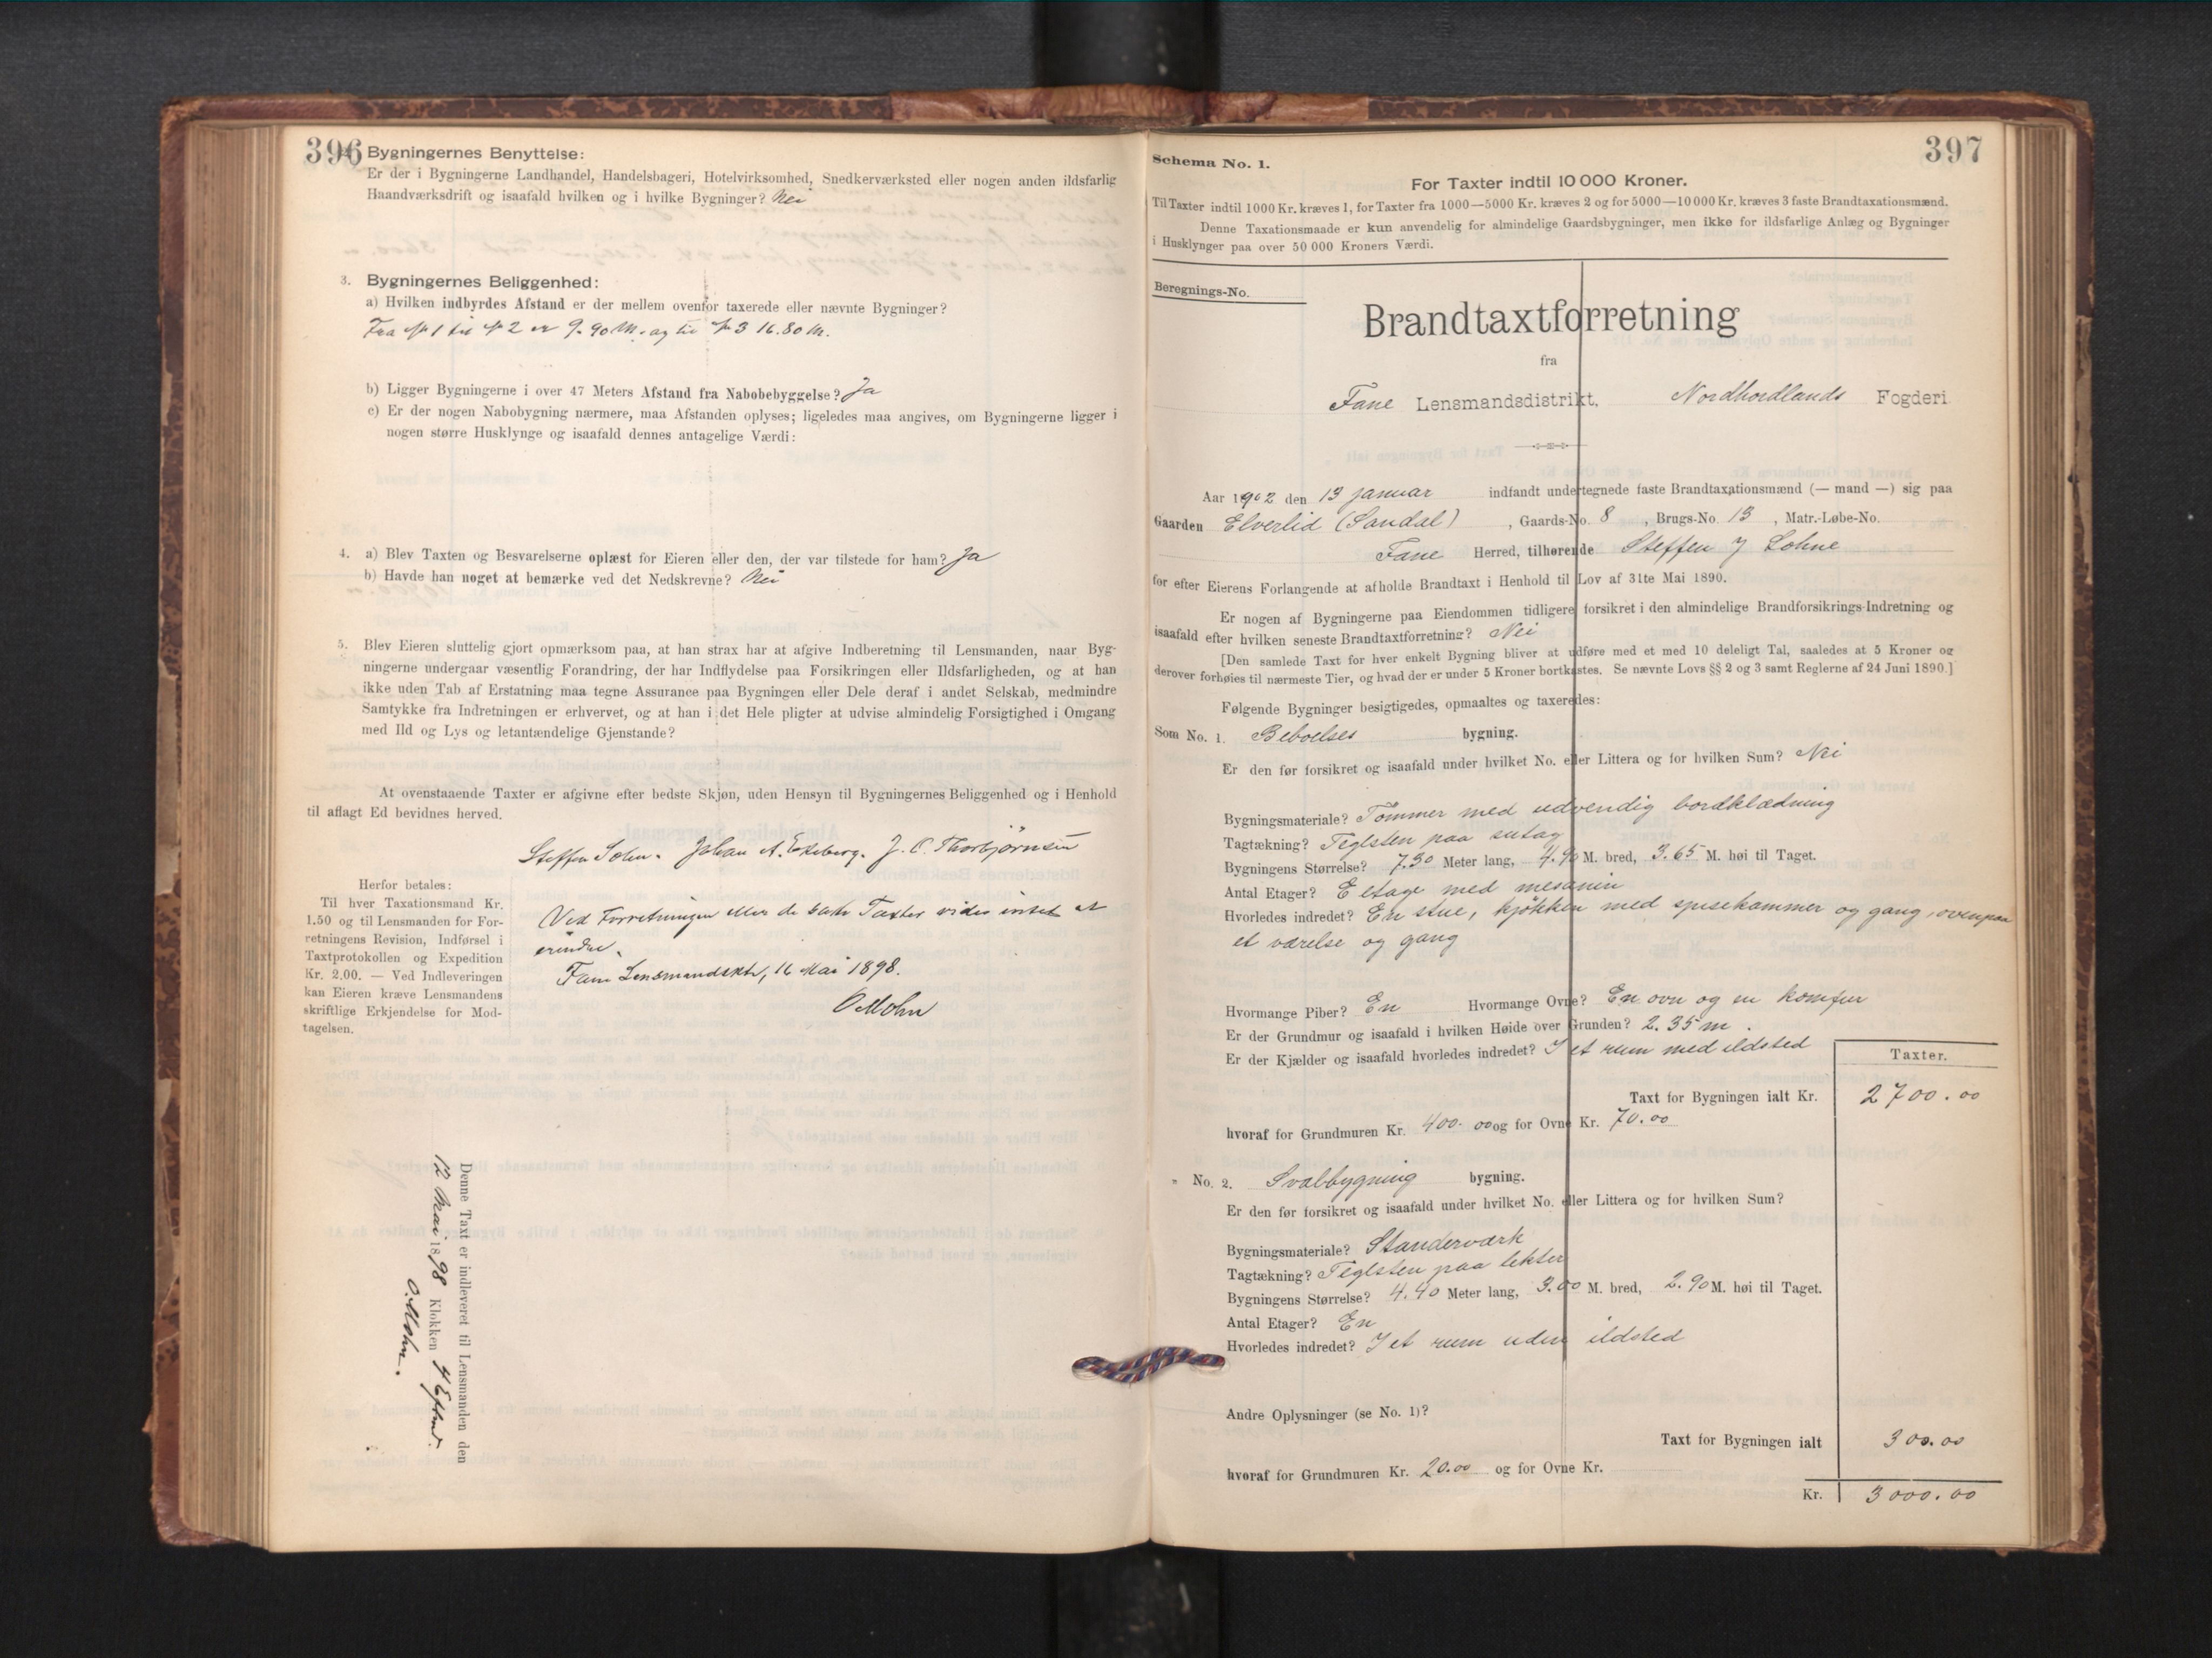 396
Bygningernes Benyttelse:
Er der i Bygningerne Landhandel, Handelsbageri, Hotelvirksomhed, Snedkerværksted eller nogen anden ildsfarlig
Haandværksdrift og isaafald hvilken og i hvilke Bygninger? Nei
3. Bygningernes Beliggenhed:
a) Hvilken indbyrdes Afstand er der mellem ovenfor taxerede eller nævnte Bygninger?
Fra № 1 til № 2 er 9.90 M. og til № 3 16.80 M.
b) Ligger Bygningerne i over 47 Meters Afstand fra Nabobebyggelse? Ja
c) Er der nogen Nabobygning nærmere, maa Afstanden oplyses; ligeledes maa angives, om Bygningerne ligger i
nogen større Husklynge og isaafald dennes antagelige Værdi:
4. a) Blev Taxten og Besvarelserne oplæst for Eieren eller den, der var tilstede for ham? Ja
b) Havde han noget at bemærke ved det Nedskrevne? Nei
5. Blev Eieren sluttelig gjort opmærksom paa, at han strax har at afgive Indberetning til Lensmanden, naar Byg-
ningerne undergaar væsentlig Forandring, der har Indflydelse paa Forsikringen eller Ildsfarligheden, og at han
ikke uden Tab af Erstatning maa tegne Assurance paa Bygningen eller Dele deraf i andet Selskab, medmindre
Samtykke fra Indretningen er erhvervet, og at han i det Hele pligter at udvise almindelig Forsigtighed i Omgang
med Ild og Lys og letantændelige Gjenstande?
At ovenstaaende Taxter er afgivne efter bedste Skjøn, uden Hensyn til Bygningernes Beliggenhed og i Henhold
til aflagt Ed bevidnes herved.
Steffen Johan A. J. C. Thorbjørnsen
Herfor betales:
Til hver Taxationsmand Kr.
1.50 og til Lensmanden for For-
retningens Revision, Indførsel i
Taxtprotokollen og Expedition
Kr. 2.00. — Ved Indleveringen
kan Eieren kræve Lensmandens
skriftlige Erkjendelse for Mod-
tagelsen.
Ved Forretningen eller de satte Taxter vides intet at
erindre.
Fane Lensmandsktr, 16 Mai 1898.
O. Mohn
Denne Taxt er indleveret til Lensmanden den
12 Mai 1898 Klokken 4 Efterm.
O. Mohn.
397
Schema No. 1.
For Taxter indtil 10 000 Kroner.
Til Taxter indtil 1000 Kr. kræves 1, for Taxter fra 1000—5000 Kr. kræves 2 og for 5000—10 000 Kr. kræves 3 faste Brandtaxationsmænd.
Denne Taxationsmaade er kun anvendelig for almindelige Gaardsbygninger, men ikke for ildsfarlige Anlæg og Bygninger
i Husklynger paa over 50 000 Kroners Værdi.
Beregnings-No.
Brandtaxtforretning
fra
Fane Lensmandsdistrikt, Nordhordlands Fogderi
Aar 1902 den 13 januar indfandt undertegnede faste Brandtaxationsmænd (— mand —) sig paa
Gaarden Elverlid (Sandal), Gaards-No. 8, Brugs-No. 13, Matr.-Løbe-No.
Fane Herred, tilhørende Steffen J Lohne
for efter Eierens Forlangende at afholde Brandtaxt i Henhold til Lov af 31te Mai 1890.
Er nogen af Bygningerne paa Eiendommen tidligere forsikret i den almindelige Brandforsikrings-Indretning og
isaafald efter hvilken seneste Brandtaxtforretning? Nei
[Den samlede Taxt for hver enkelt Bygning bliver at udføre med et med 10 deleligt Tal, saaledes at 5 Kroner og
derover forhøies til nærmeste Tier, og hvad der er under 5 Kroner bortkastes. Se nævnte Lovs §§ 2 og 3 samt Reglerne af 24 Juni 1890.]
Følgende Bygninger besigtigedes, opmaaltes og taxeredes:
Som No. 1. Beboelses bygning.
Er den før forsikret og isaafald under hvilket No. eller Littera og for hvilken Sum? Nei
Bygningsmateriale? Tömmer med udvendig bordklædning
Tagtækning? Teglsten paa sutag
Bygningens Størrelse? 7.30 Meter lang, 4.90 M. bred, 3.65 M. høi til Taget.
Antal Etager? E etage med mesanin
Hvorledes indredet? En stue, kjøkken med spisekammer og gang, ovenpaa
et værelse og gang
Hvormange Piber? En Hvormange Ovne? En ovn og en komfur
Er der Grundmur og isaafald i hvilken Høide over Grunden? 2.35 m.
Er der Kjælder og isaafald hvorledes indredet? I et rum med ildsted
Taxter.
Taxt for Bygningen ialt Kr. 2700.00
hvoraf for Grundmuren Kr. 400.00 og for Ovne Kr. 70.00
" No. 2. Svalbygning bygning.
Er den før forsikret og isaafald under hvilket No. eller Littera og for hvilken Sum?
Bygningsmateriale? Standerværk
Tagtækning? Teglsten paa lekter
Bygningens Størrelse? 4.40 Meter lang, 3.00 M. bred, 2.90 M. høi til Taget.
Antal Etager? En
Hvorledes indredet? I et rum uden ildsted
Andre Oplysninger (se No. 1)?
Taxt for Bygningen ialt 300.00
hvoraf for Grundmuren Kr. 20.00 og for Ovne Kr.
Kr. 3000.00